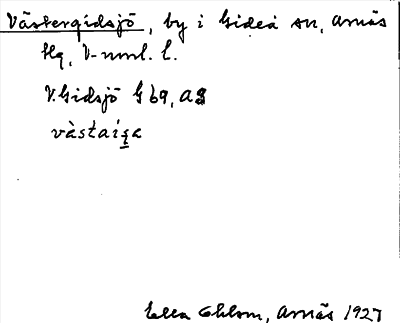 Västergidsjö, by i Gideå sn, Arnäs
Hg, V-norrl. l.
V. Gidsjö G 69, A3
Ella Ohlson, Arnäs 1927